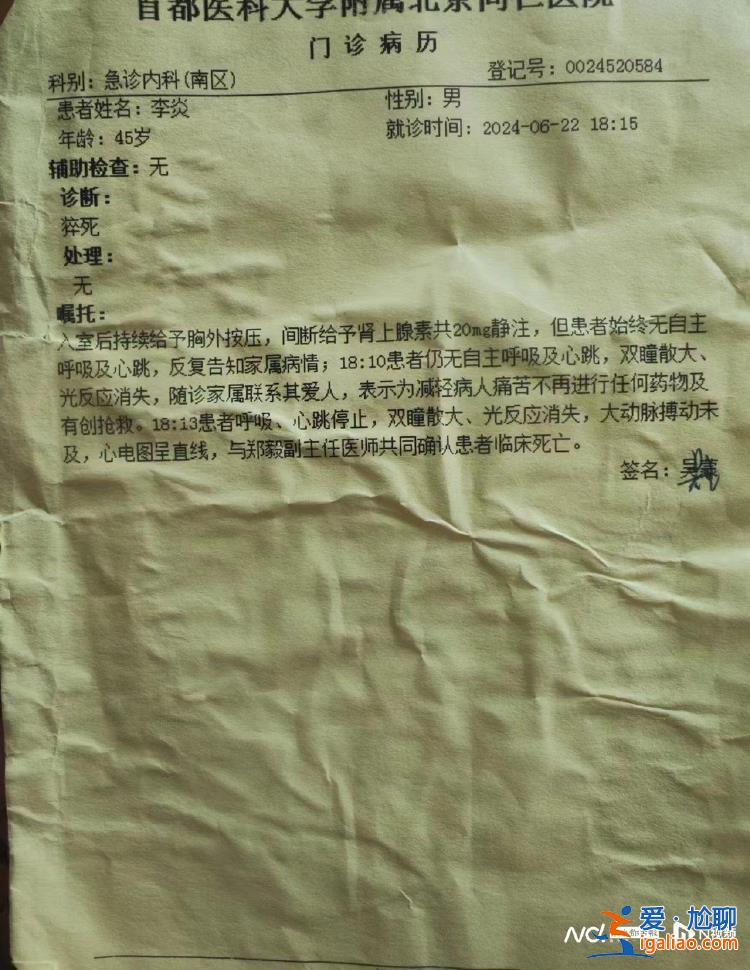 首都医科大学附属北京同仁医院
门诊病历
科别：急诊内科(南区)
登记号：0024520584
患者姓名：李炎
性别：男
年龄：45岁
就诊时间：2024-06-22 18:15
辅助检查：无
诊断：
猝死
处理：
无
嘱托：
入室后持续给予胸外按压，间断给予肾上腺素共20mg静注，但患者始终无自主
呼吸及心跳，反复告知家属病情；18:10患者仍无自主呼吸及心跳，双瞳散大、
光反应消失，随诊家属联系其爱人，表示为减轻病人痛苦不再进行任何药物及
有创抢救。18:13患者呼吸、心跳停止，双瞳散大、光反应消失，大动脉搏动未
及，心电图呈直线，与郑毅副主任医师共同确认患者临床死亡。
签名：
爱·尬聊
igaliao.com